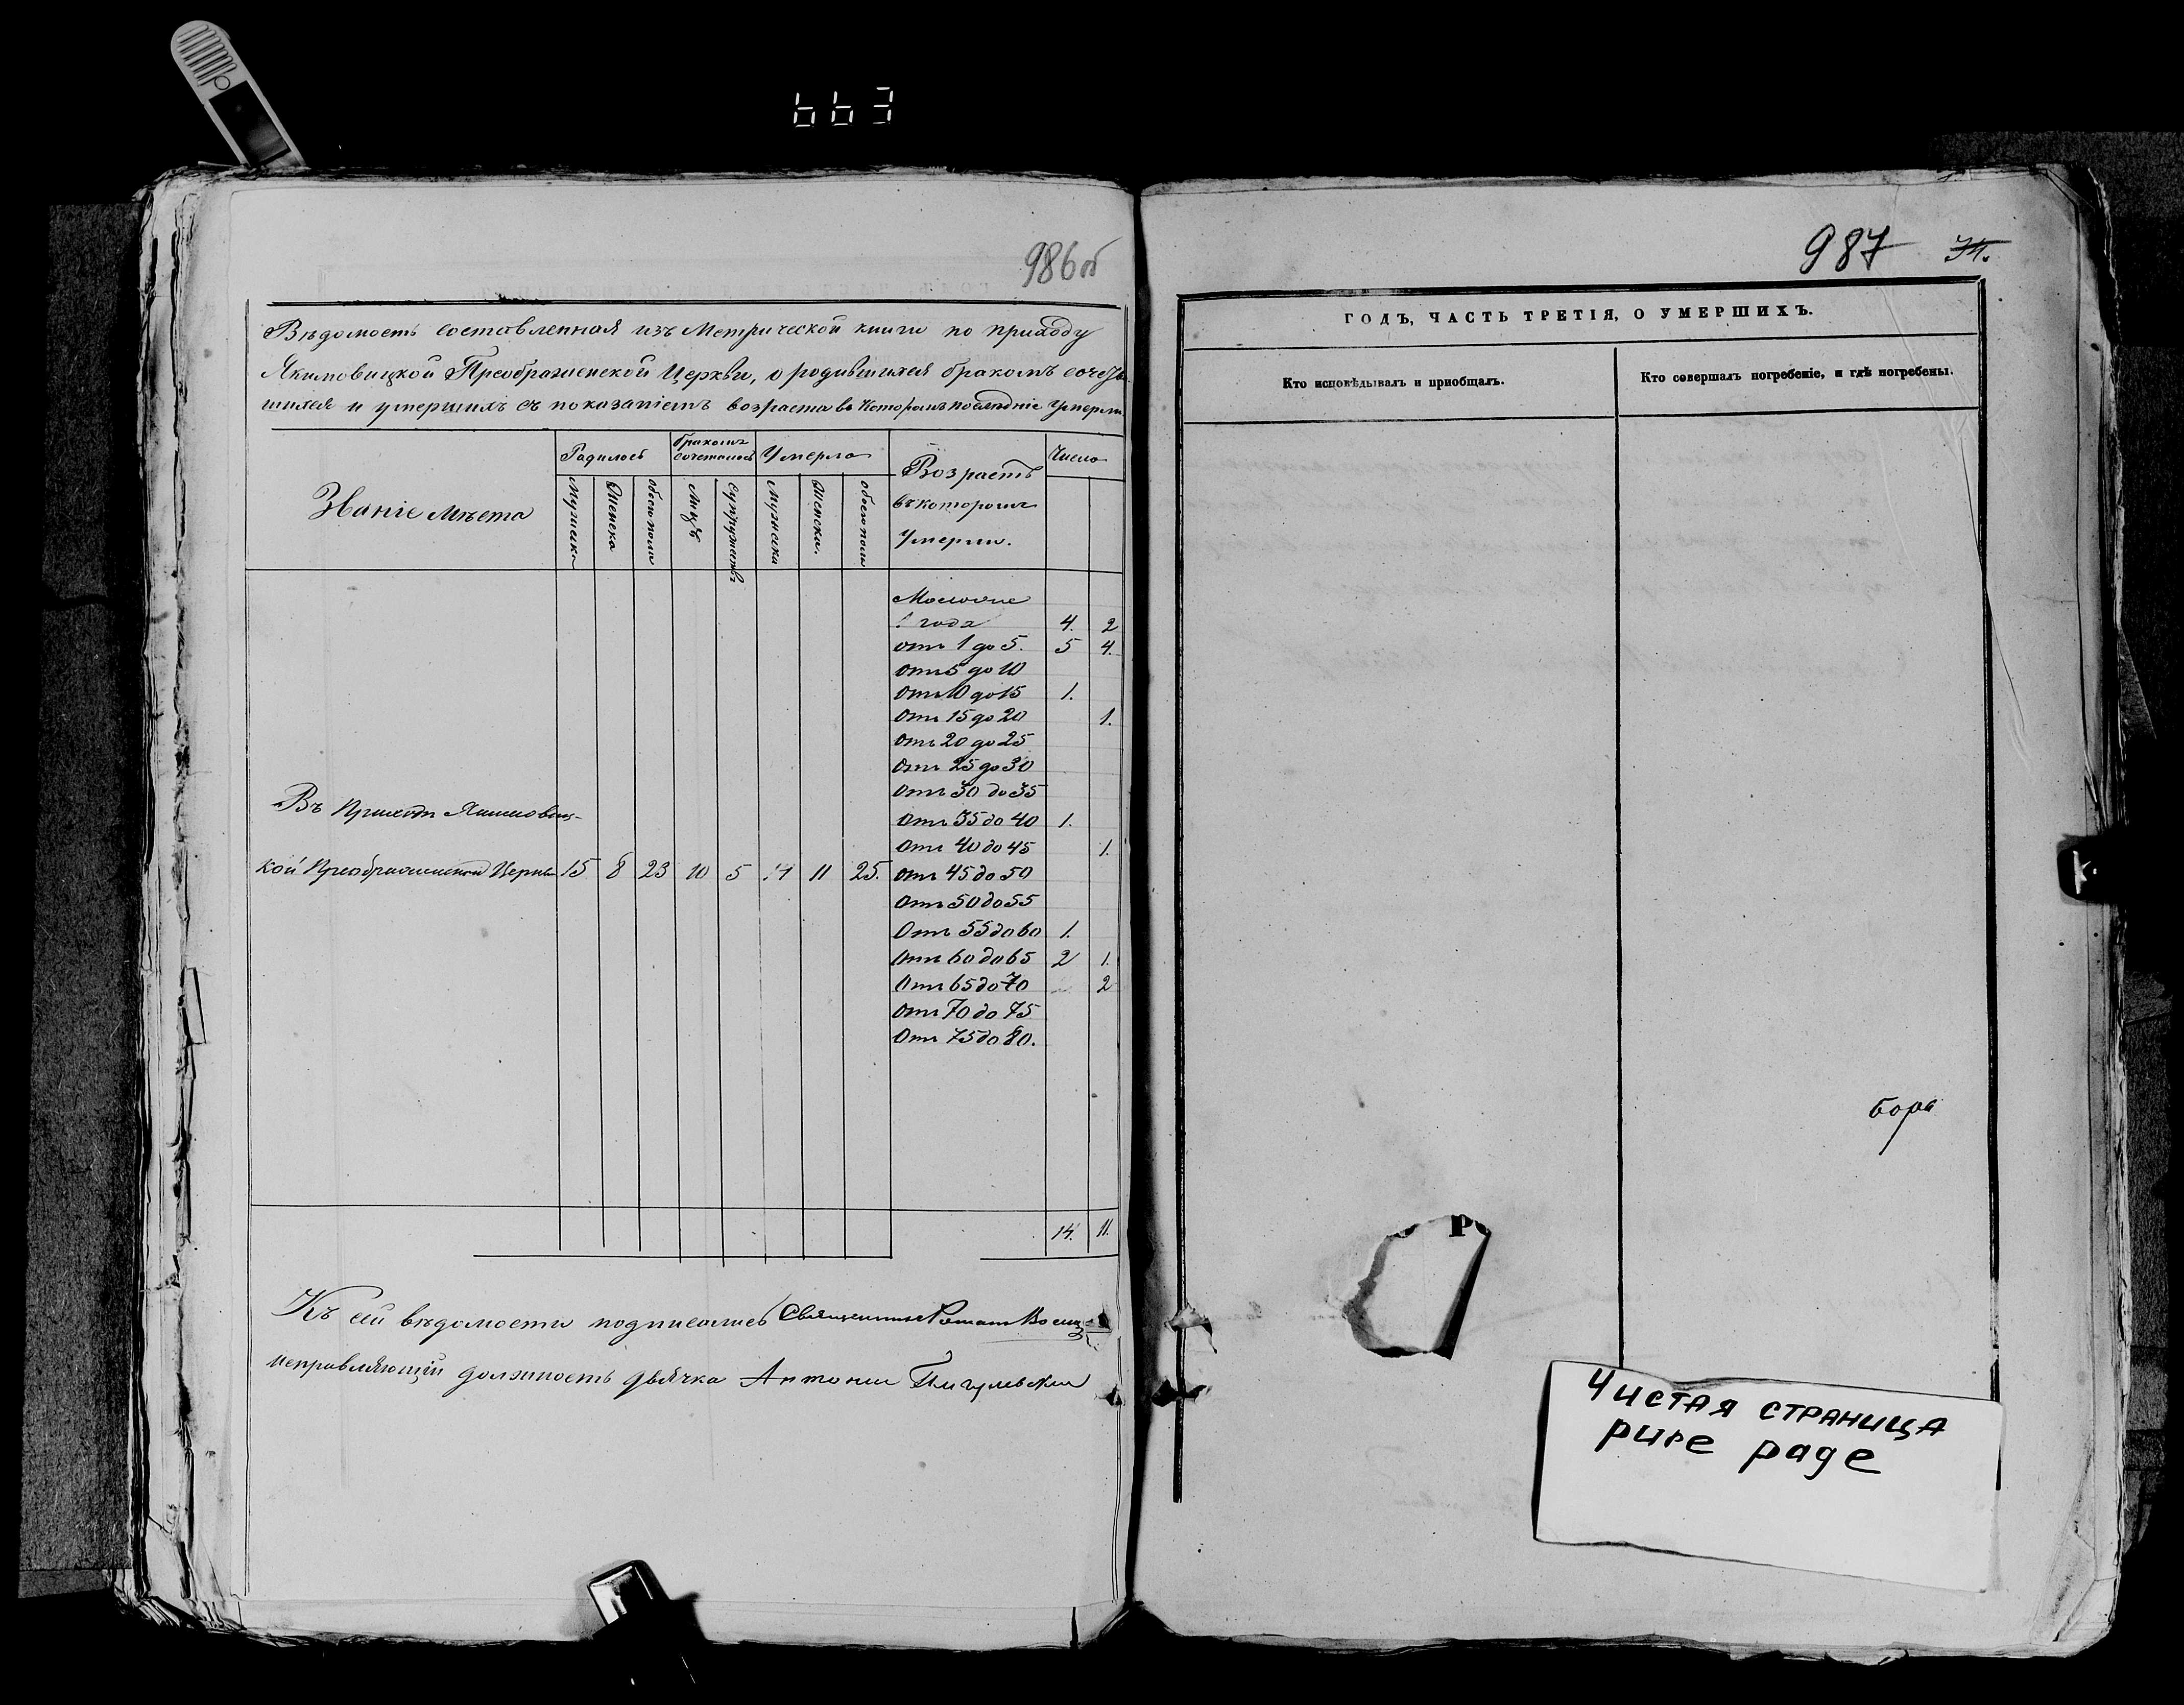 663
986об
Вѣдомость составленная изъ Метрической книги по приходу
Якимовицкой Преображенской Церкви, о родившихся бракомъ сочета-
шихся и умершихъ съ показаніемъ возраста въ которомъ последніе умерли
Званіе мѣста
Родилось
бракомъ сочеталось
Умерло
Возрастъ въ которомъ Умерли.
Число
Мужеска
Женска
обоего пола
Лицъ
Супружествъ
Мужеска
Женска.
обоего пола
1 года 4. 2
отъ 1 до 5. 5 4.
отъ 5 до 10
отъ 10 до 15 1.
отъ 15 до 20 1.
отъ 20 до 25
отъ 25 до 30
отъ 30 до 35
Въ Приходѣ Якимовиц-
отъ 35 до 40 1.
отъ 40 до 45 1.
кой Преображенской Церкви 15 8 23 10 5 14 11 25. отъ 45 до 50
отъ 50 до 55
Отъ 55 до 60 1.
Отъ 60 до 65 2 1.
Отъ 65 до 70 2
отъ 70 до 75
Отъ 75 до 80.
14. 11.
Къ сей вѣдомости подписались Священникъ Романъ
исправляющій должность дьячка Антоній Пигулевскій
987 74.
ГОДЪ, ЧАСТЬ ТРЕТІЯ, О УМЕРШИХЪ.
Кто исповѣдывалъ и пріобщалъ.
Кто совершалъ погребеніе, и гдѣ погребены.
бора
Р
Чистая страница
pure page